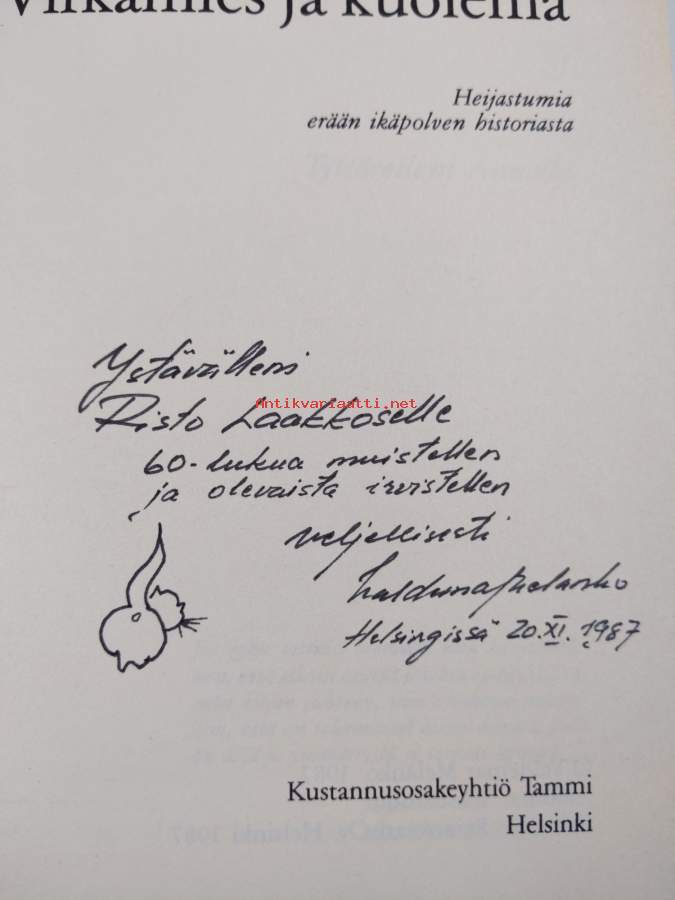 Virkamies ja kuolema
Heijastumia
erään ikäpolven historiasta
Ystävälleni
Antikvariaatti.net
Risto Laakkoselle
60-lukua muistellen
ja olevaista irvistellen
veljellisesti
Helsingissä 20.XI.1987
Kustannusosakeyhtiö Tammi
Helsinki